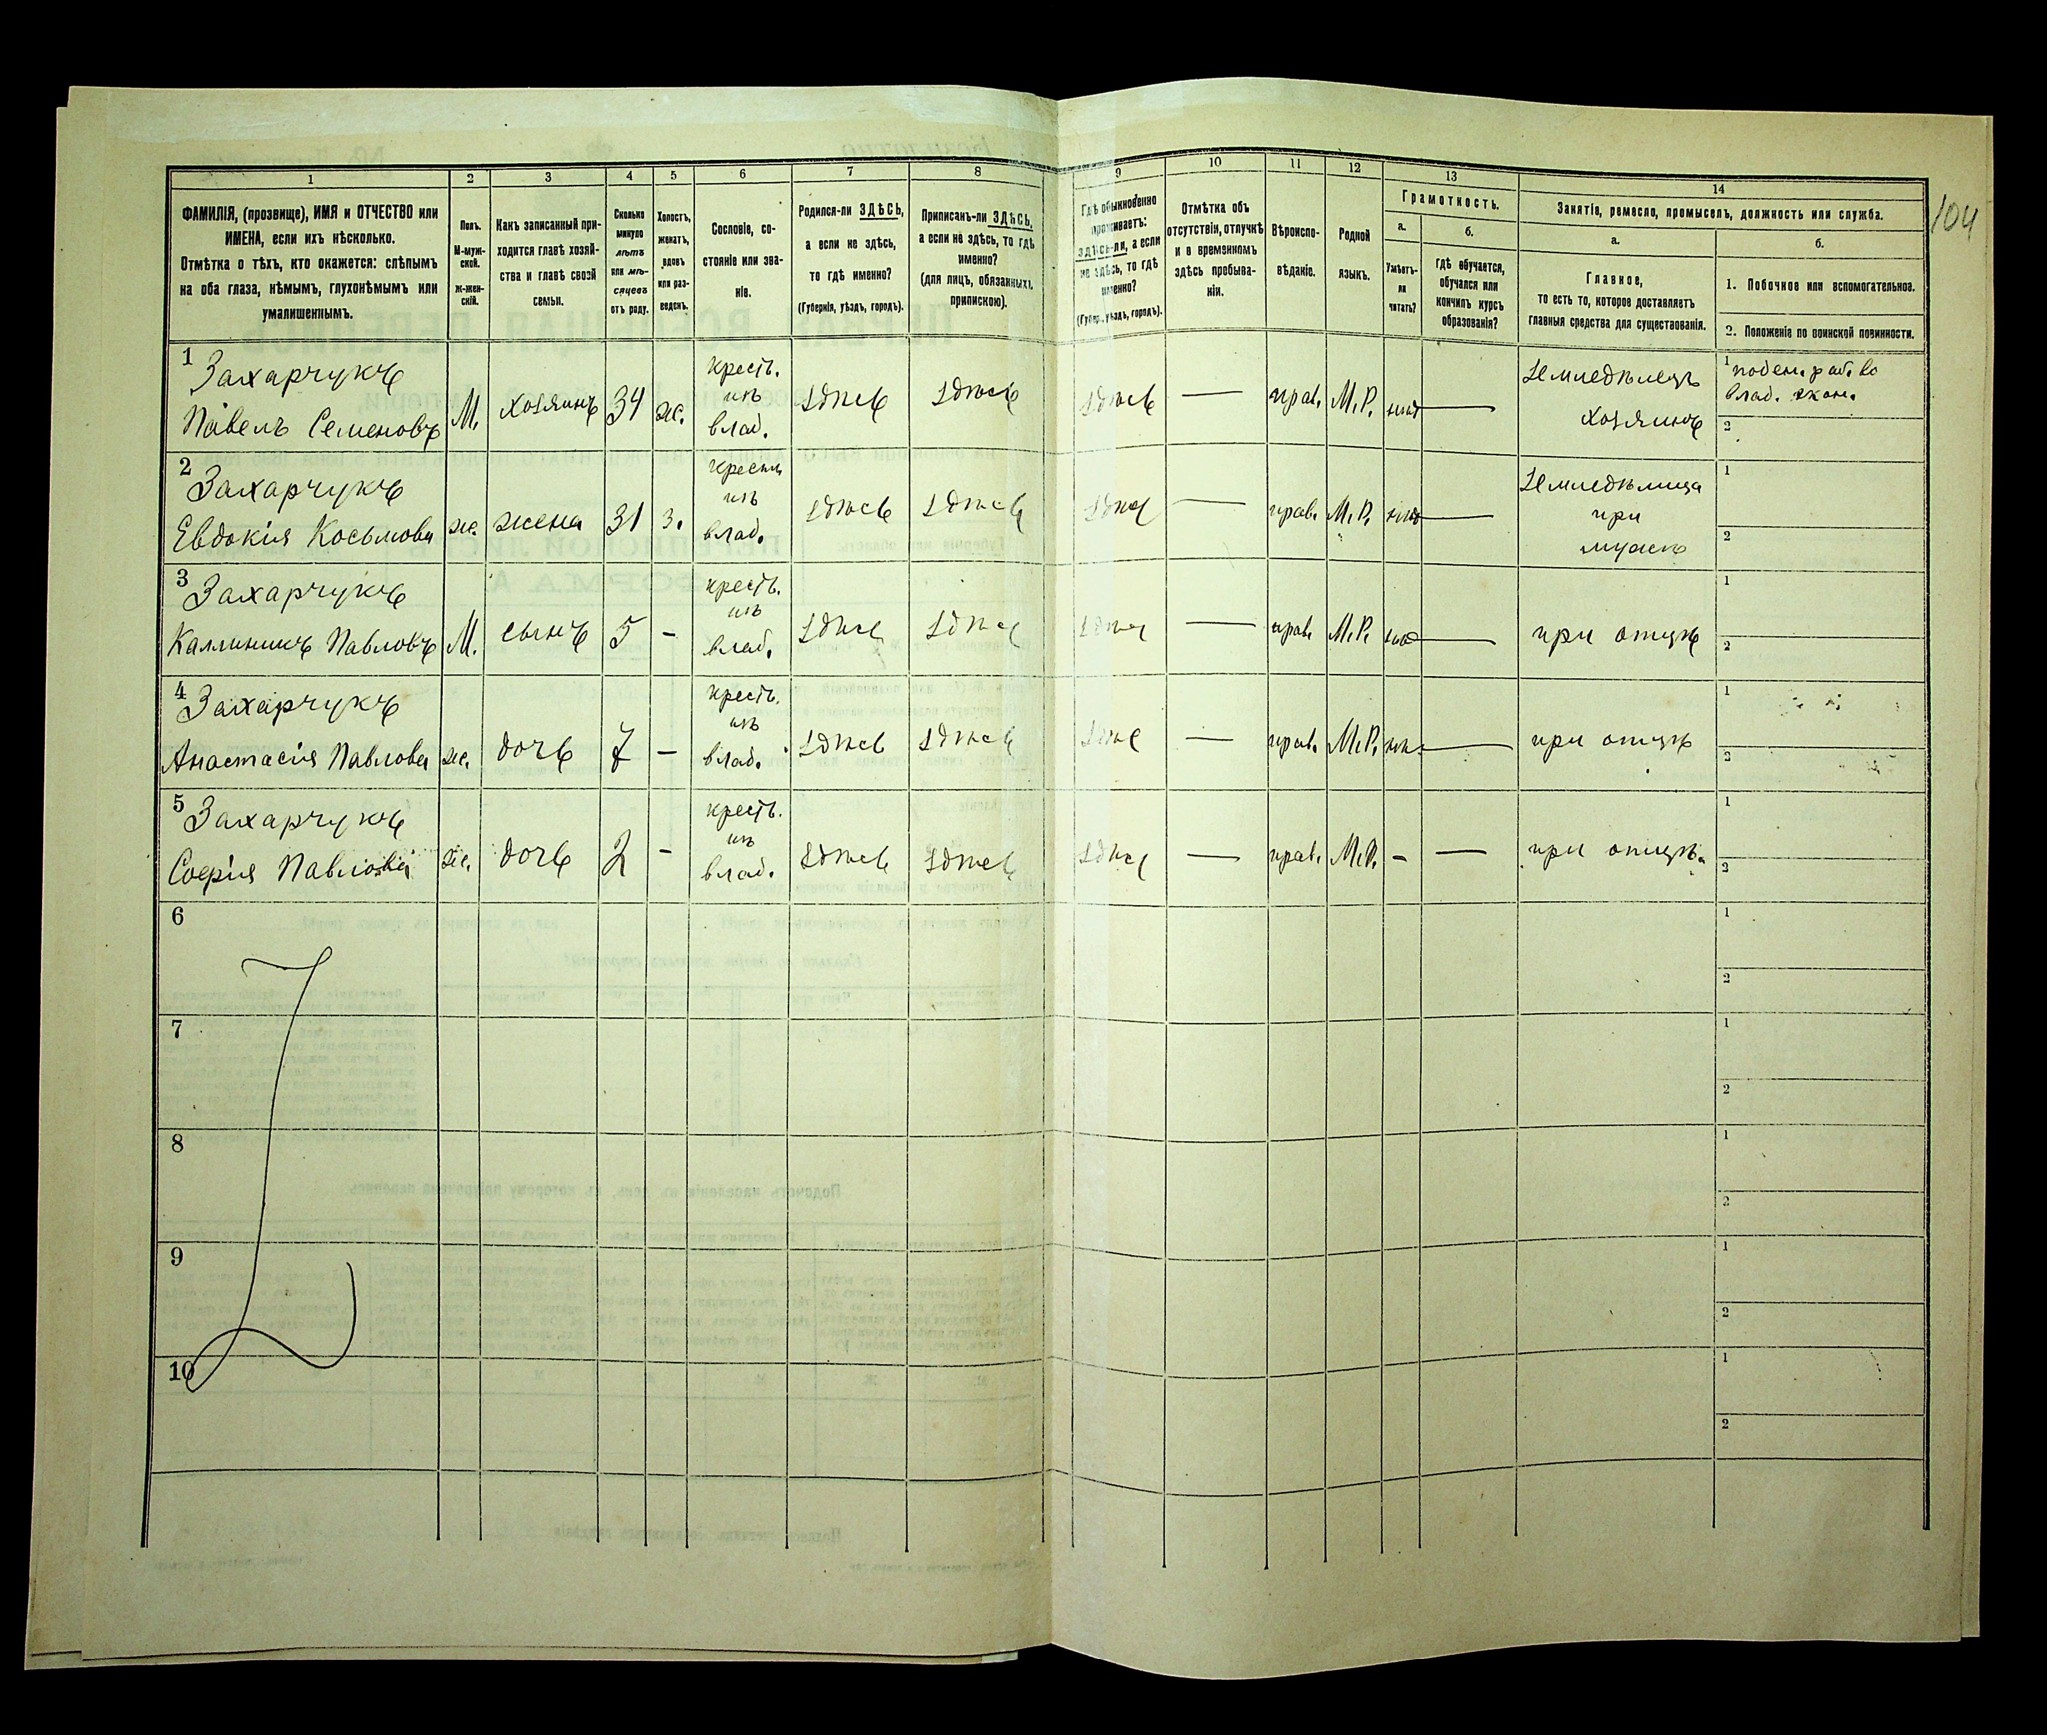 104
1
2
3
4
5
6
7
8
9
10
11
12
13
14
ФАМИЛІЯ, (прозвище), ИМЯ и ОТЧЕСТВО или
ИМЕНА, если ихъ нѣсколько.
Отмѣтка о тѣхъ, кто окажется: слѣпымъ
на оба глаза, нѣмымъ, глухонѣмымъ или
умалишеннымъ.
Полъ.
М-муж-
ской.
Ж-жен-
скій.
Какъ записанный при-
ходится главѣ хозяй-
ства и главѣ своей
семьи.
Сколько
минуло
лѣтъ
или мѣ-
сяцевъ
отъ роду.
Холостъ,
женатъ,
вдовъ
или раз-
веденъ.
Сословіе, со-
стояніе или зва-
ніе.
Родился-ли ЗДѢСЬ,
а если не здѣсь,
то гдѣ именно?
(Губернія, уѣздъ, городъ).
Приписанъ-ли ЗДѢСЬ,
а если не здѣсь, то гдѣ
именно?
(для лицъ, обязанныхъ
припискою).
Гдѣ обыкновенно
проживаетъ:
здѣсь-ли, а если
не здѣсь, то гдѣ
именно?
(Губер., уѣздъ, городъ).
Отмѣтка объ
отсутствіи, отлучкѣ
и о временномъ
здѣсь пребыва-
ніи.
Вѣроиспо-
вѣданіе.
Родной
языкъ.
Грамотность.
а.
Умѣетъ-
ли
читать?
б.
гдѣ обучается,
обучался или
кончилъ курсъ
образованія?
Занятіе, ремесло, промыселъ, должность или служба.
а.
Главное,
то есть то, которое доставляетъ
главныя средства для существованія.
б.
1. Побочное или вспомогательное.
2. Положеніе по воинской повинности.
1
Захарчукъ
Павелъ Семеновъ
М. хозяинъ 34 ж.
крестъ.
изъ
влад.
здѣсь здѣсь здѣсь — прав. М.Р. нѣт —
Земледѣлецъ
хозяинъ
1 поден. раб. во
влад. экон.
2
2
Захарчукъ
Евдокія Косьмова
ж. жена 31 з.
крестьян
изъ
влад.
здѣсь здѣсь здѣсь — прав. М.Р. нѣт —
Земледѣлица
при
мужѣ
1
2
3
Захарчукъ
Каллиникъ Павловъ
М. сынъ 5 -
крестъ.
изъ
влад.
здѣсь здѣсь здѣсь — прав. М.Р. нѣт —
при отцѣ
1
2
4
Захарчукъ
Анастасія Павлова
ж. дочь 7 -
крестъ.
изъ
влад.
здѣсь здѣсь здѣсь — прав. М.Р. нѣт. —
при отцѣ
1
2
5
Захарчукъ
Софія Павлова
ж. дочь 2 -
крестъ.
изъ
влад.
здѣсь здѣсь здѣсь — прав. М.Р. - —
при отцѣ.
1
2
6
1
2
7
1
2
8
1
2
9
1
2
10
1
2